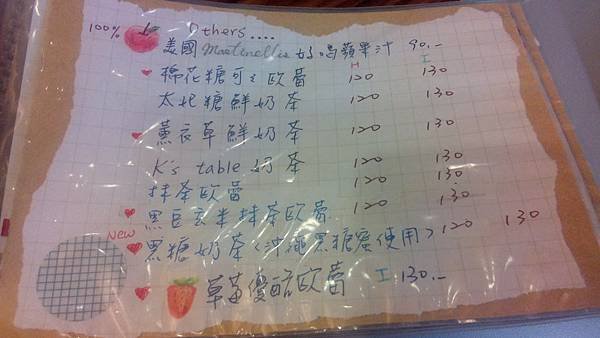 100% Others....
美國Martinelli's 好喝蘋果汁 90.-
H I
棉花糖可可欧蕾 120 130
太妃糖鮮奶茶 120 130
薰衣草鮮奶茶 120 130
K's table 奶茶 120 130
抹茶欧蕾 120 130
黑豆玄米抹茶欧蕾 120 130
New 黑糖奶茶(沖繩黑糖蜜使用) 120 130
草莓優酪欧蕾 I 130.-